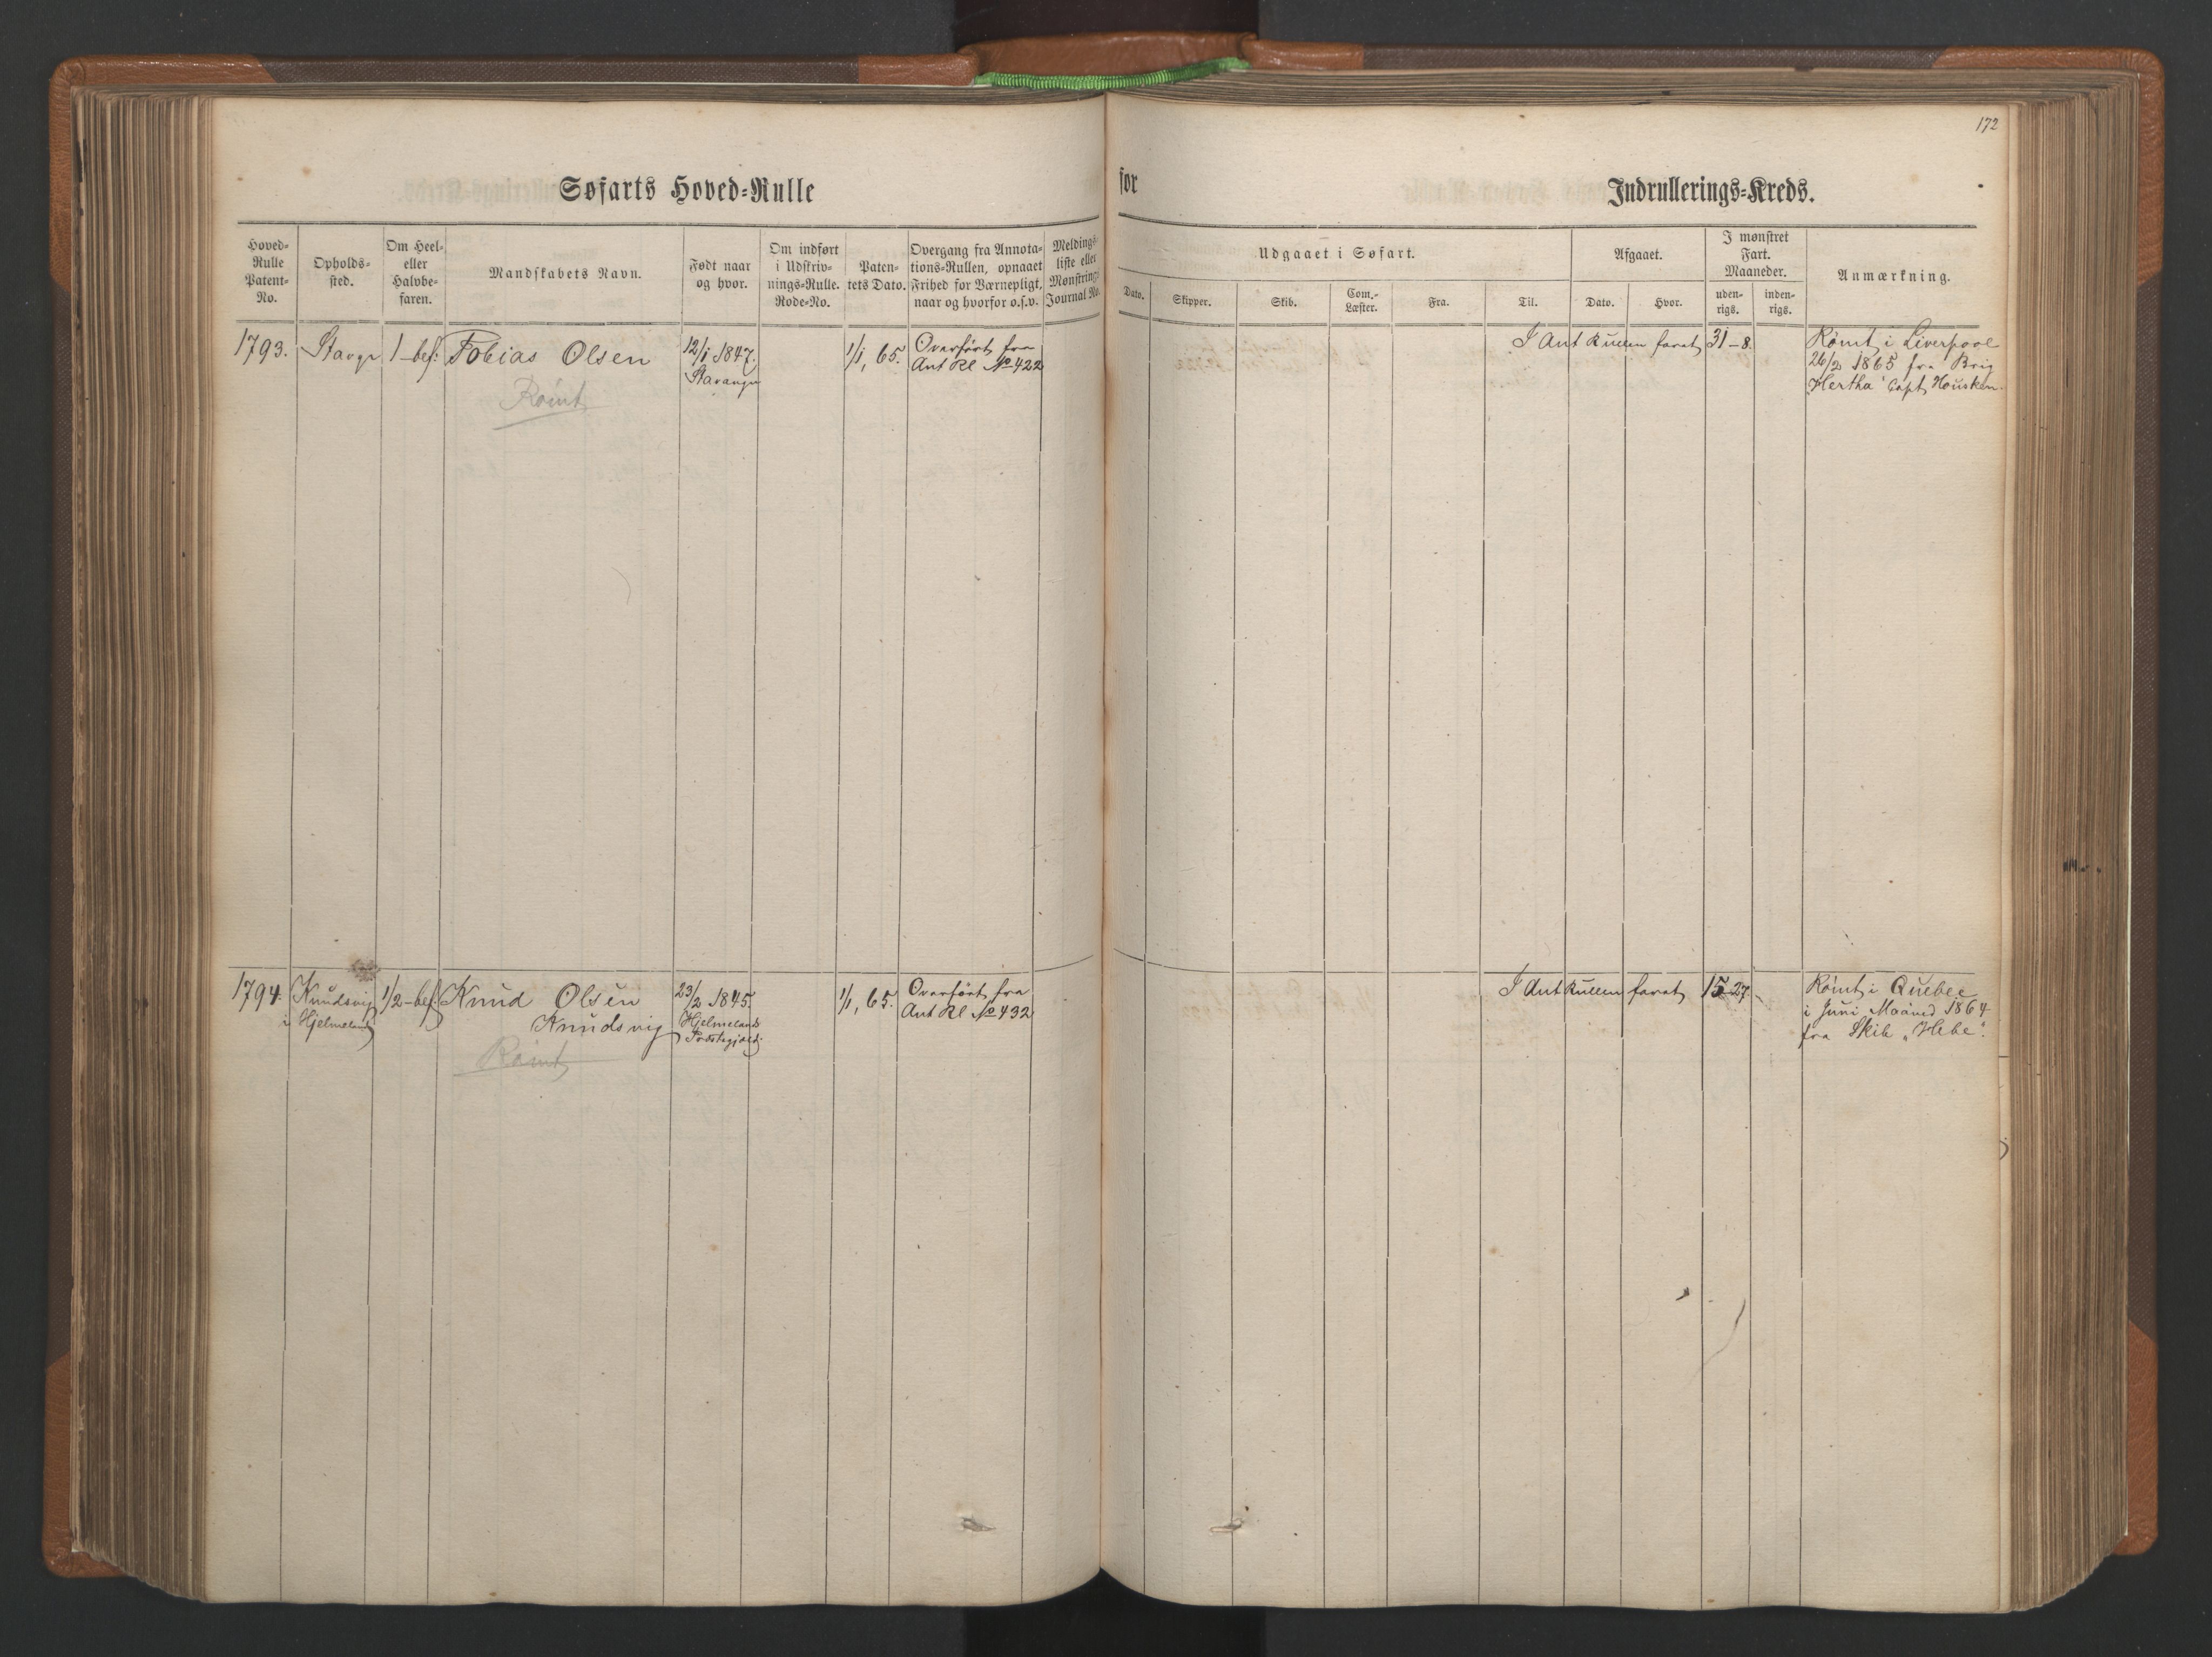 172
Søfarts Hoved-Rulle
for
Indrullerings-Kreds.
Hoved-
Rulle
Patent-
No.
Opholds-
sted.
Om Heel-
eller
Halvbe-
faren.
Mandskabets Navn.
Født naar
og hvor.
Om indført
i Udskriv-
nings-Rulle.
Rode-No.
Paten-
tets Dato.
Overgang fra Annota-
tions-Rullen, opnaaet
Frihed for Værnepligt,
naar og hvorfor o.s.v.
Meldings-
liste eller
Mønstrings
Journal No.
Udgaaet i Søfart.
Dato.
Skipper.
Skib.
Com.-
Læster.
Fra.
Til.
Afgaaet.
Dato.
Hvor.
I mønstret
Fart.
Maaneder.
uden-
rigs.
inden-
rigs.
Anmærkning.
1793.
Stavgr
1-bef:
Tobias Olsen
Rømt
12/1 1847.
Stavanger
1/1, 65.
Overført fra
Ant Rl No 422
I Ant Rullen faret
31-8
Rømt i Liverpool
26/2 1865 fra Brig
"Hertha" Capt, Housken.
1794.
Knudsvig
i Hjelmeland
1/2-bef:
Knud Olsen
Knudsvig
Rømt
23/2 1845.
Hjelmelands
Præstegjæld
1/1, 65.
Overført fra
Ant Rl No 432
I Ant Rullen faret
15-27.
Rømt i Quebec
i Juni Maaned 1864
fra Skib "Hebe".